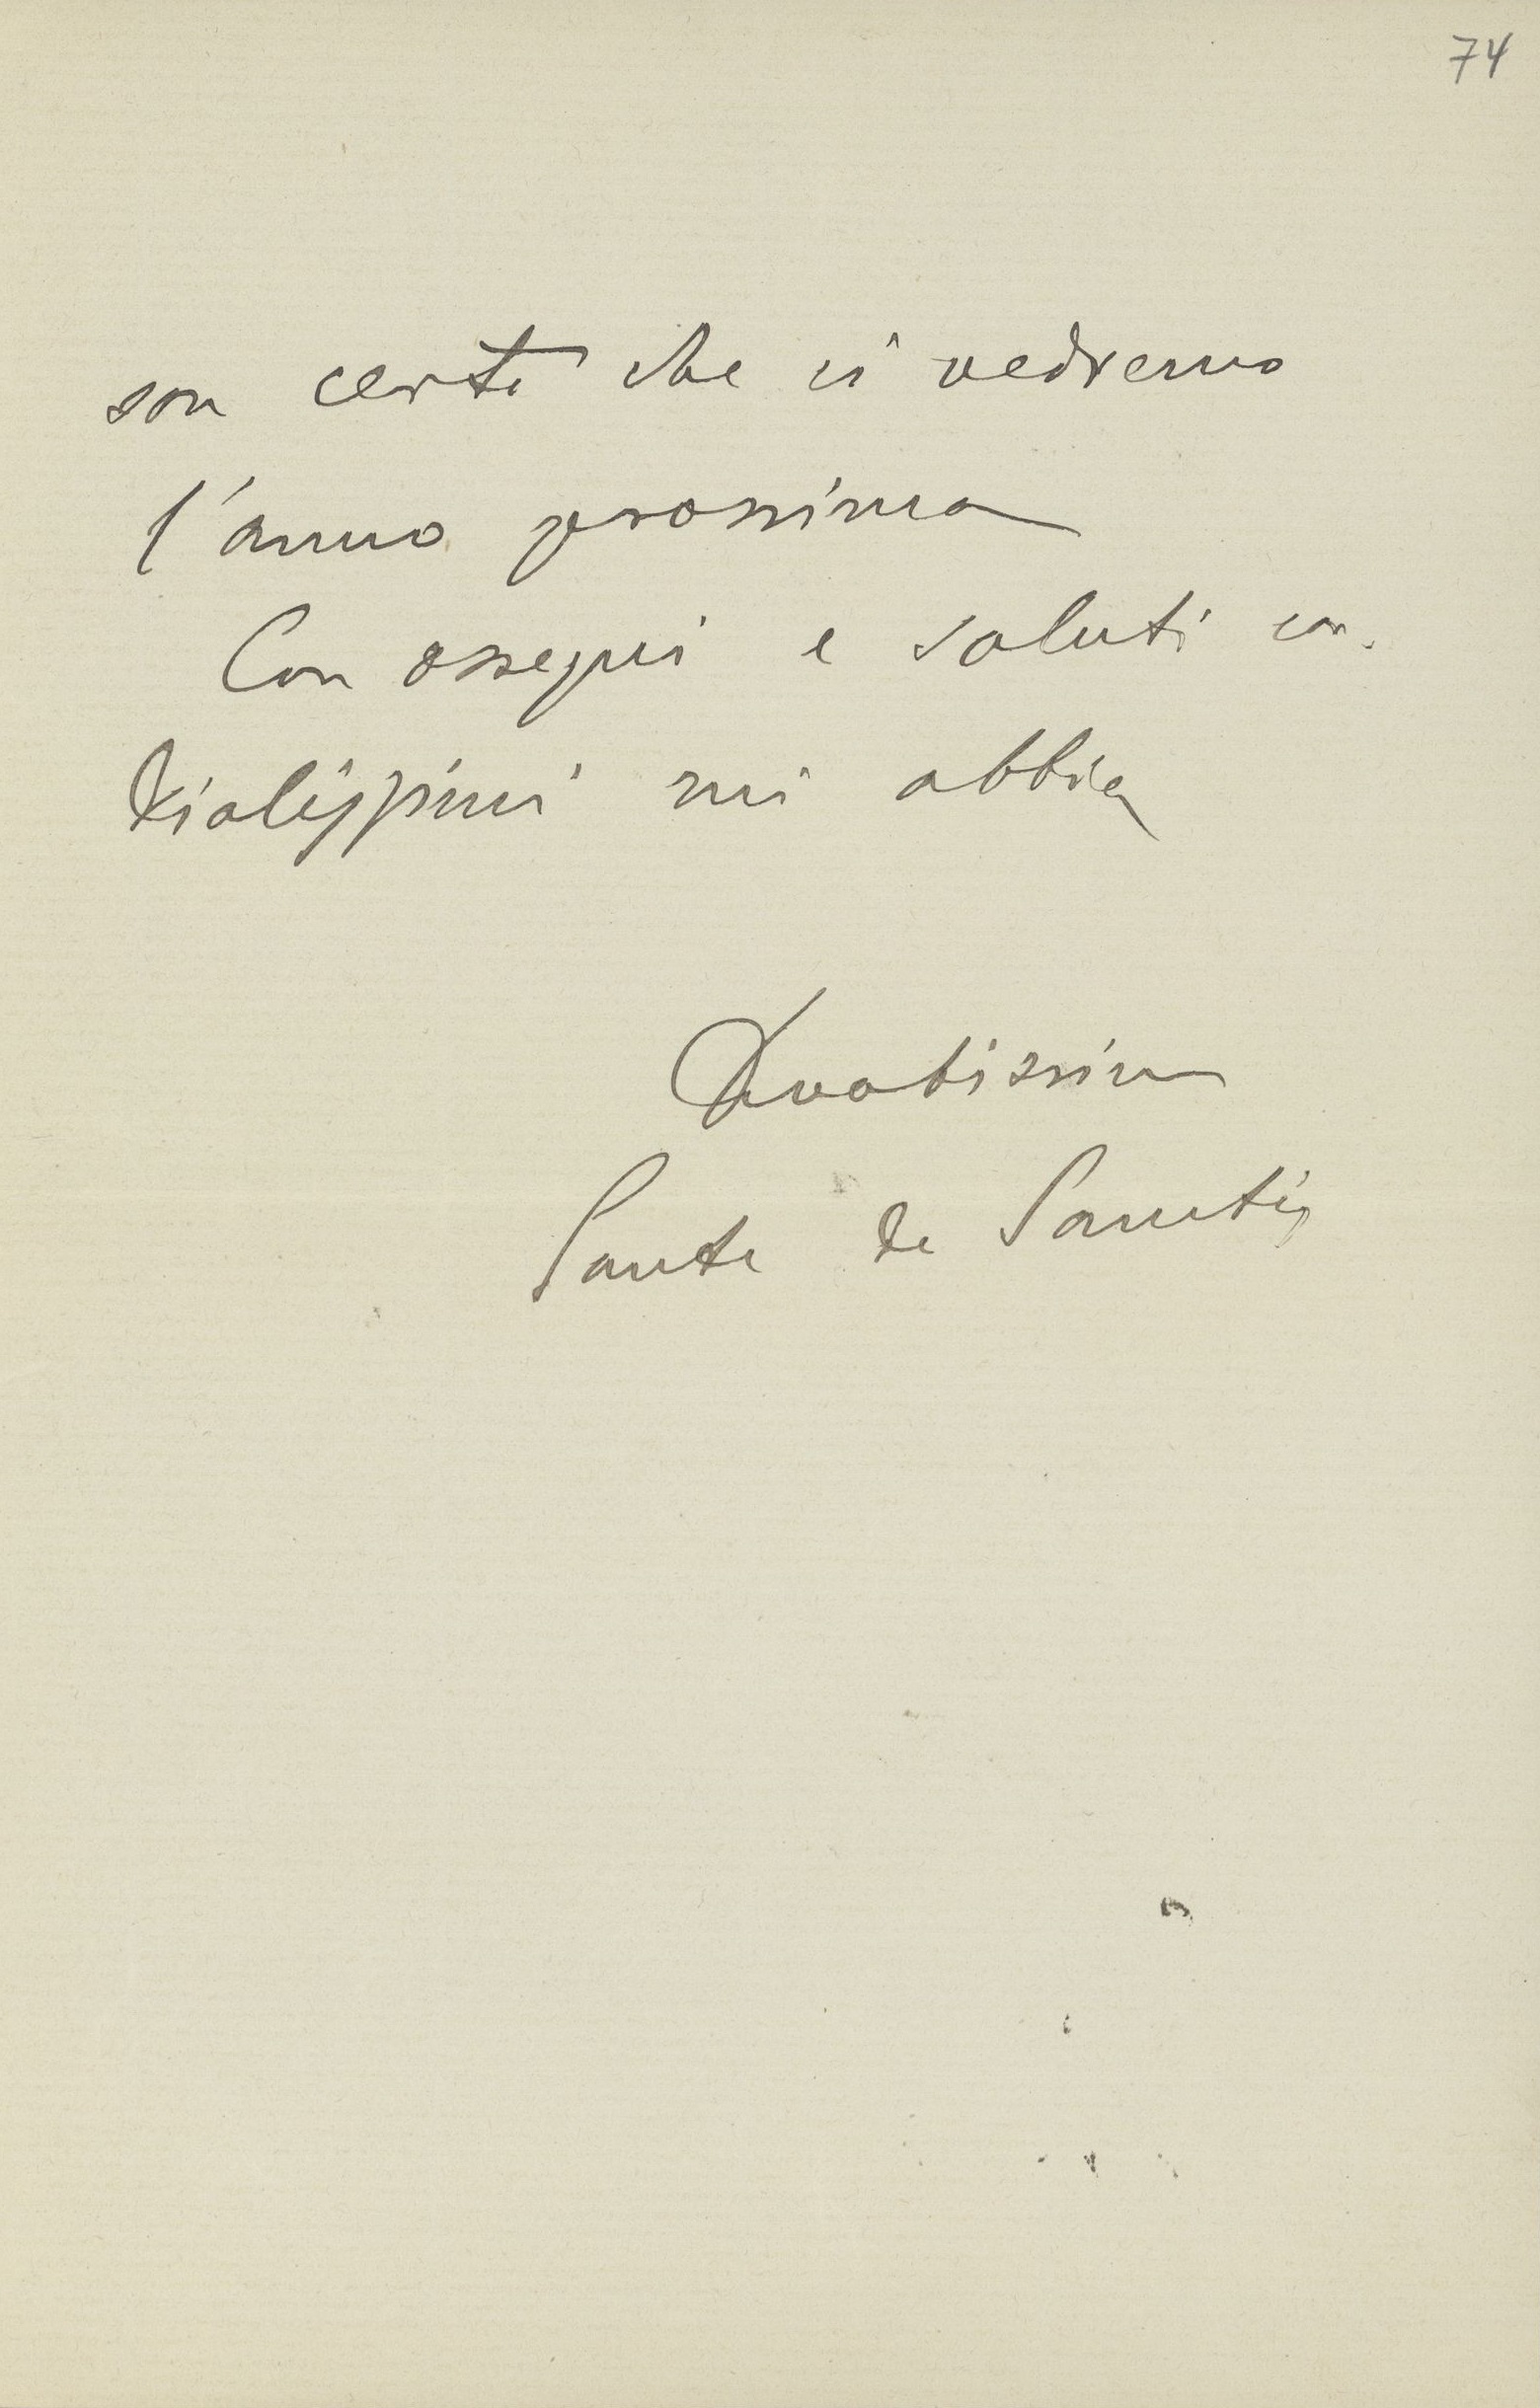 74
son certo che ci vedremo
l'anno prossimo
Con ossequi e saluti cor-
dialissimi mi abbia
Devotissimo
Sante de Sanctis